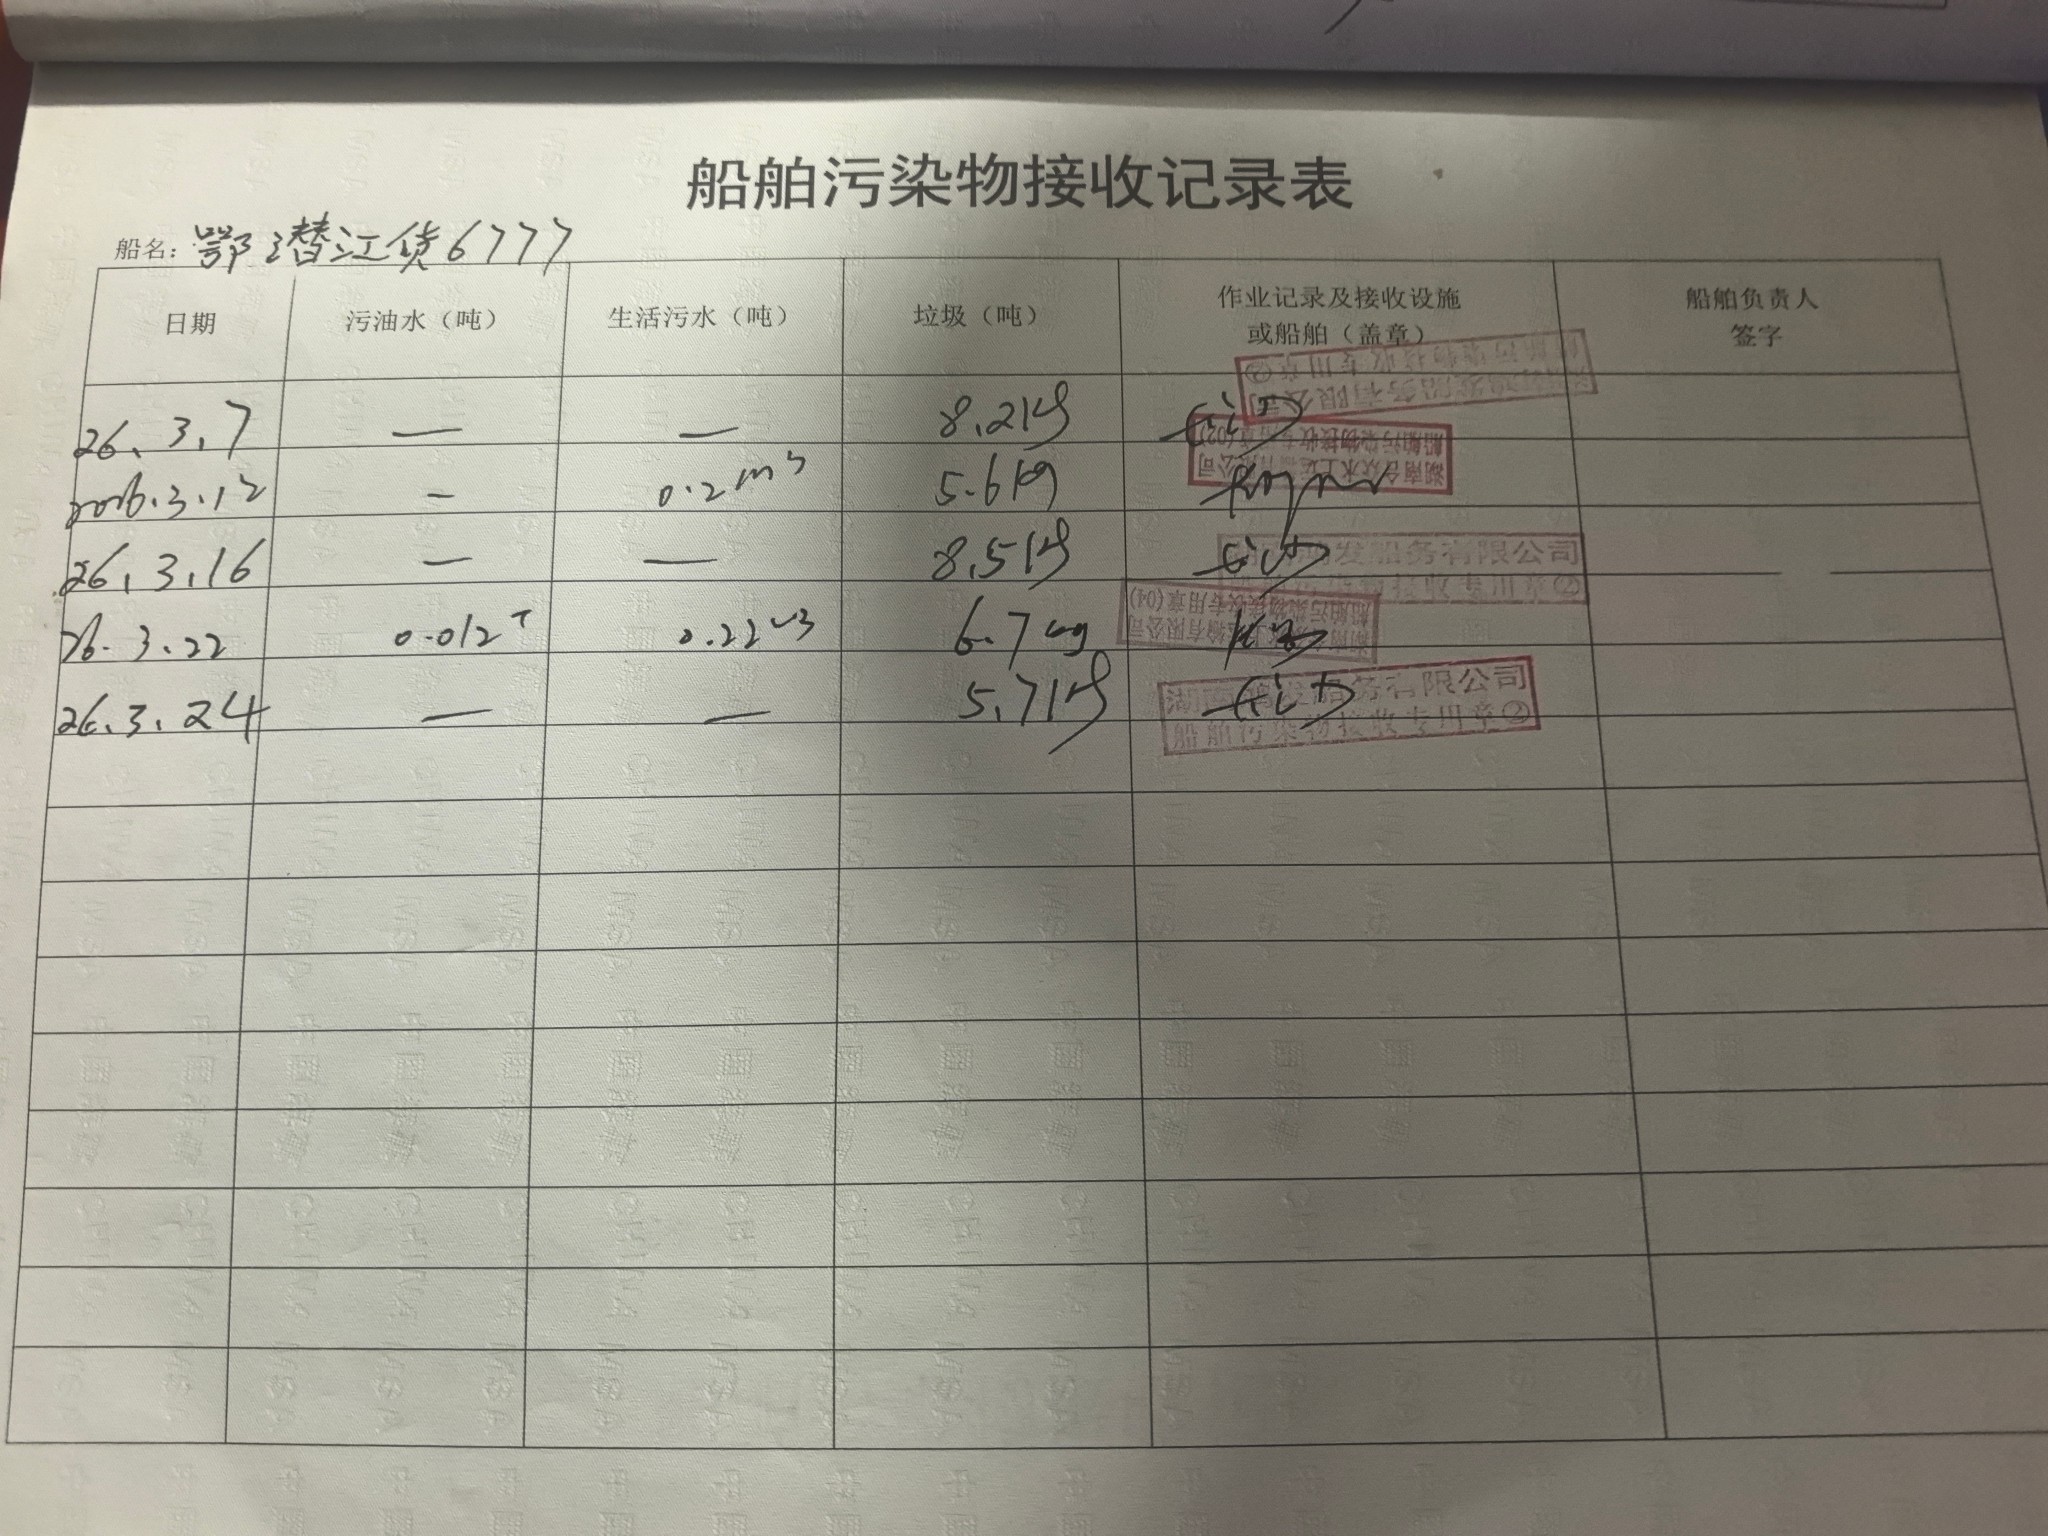 船舶污染物接收记录表
船名：鄂潜江货6777
日期 污油水（吨） 生活污水（吨） 垃圾（吨） 作业记录及接收设施或船舶（盖章） 船舶负责人签字
26.3.7 — — 8.2kg
船舶污染物接收专用章②
发船务有限公司
2026.3.12 - 0.2m3 5.6kg
湖南合众水上运输有限公司
船舶污染物接收专用章(02)
26.3.16 — — 8.5kg
发船务有限公司
接收专用章②
26.3.22 0.012T 0.22m3 6.7kg
船舶污染物接收专用章(04)
26.3.24 — — 5.7kg
湖南 发船务有限公司
船舶污染物接收专用章②